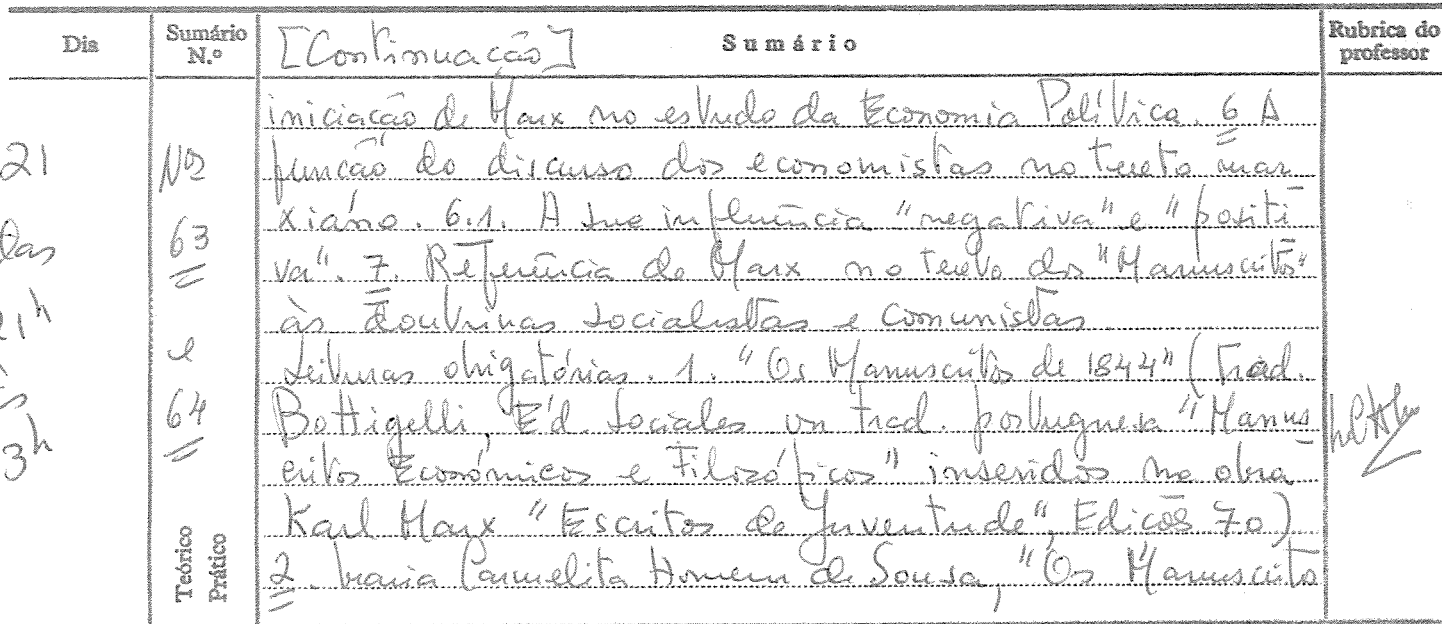 Dia
Sumário N.º
[Continuação]
Sumário
Rubrica do professor
21
das
21h
às
3h
Nos
63
e
64
Teórico
Prático
iniciação de Marx no estudo da Economia Política. 6 A
função do discurso dos economistas no texto mar
xiano. 6.1. A sua influência "negativa" e "positi
va". 7. Referência de Marx no texto dos "Manuscritos"
às doutrinas socialistas e comunistas.
Leituras obrigatórias. 1. "Os Manuscritos de 1844" (Trad.
Bottigelli, Éd. Sociales ou trad. portuguesa "Manus
critos Económicos e Filosóficos" inseridos na obra
Karl Marx "Escritos de Juventude", Edições 70)
2. Maria Carmelita Homem de Sousa, "Os Manuscrito